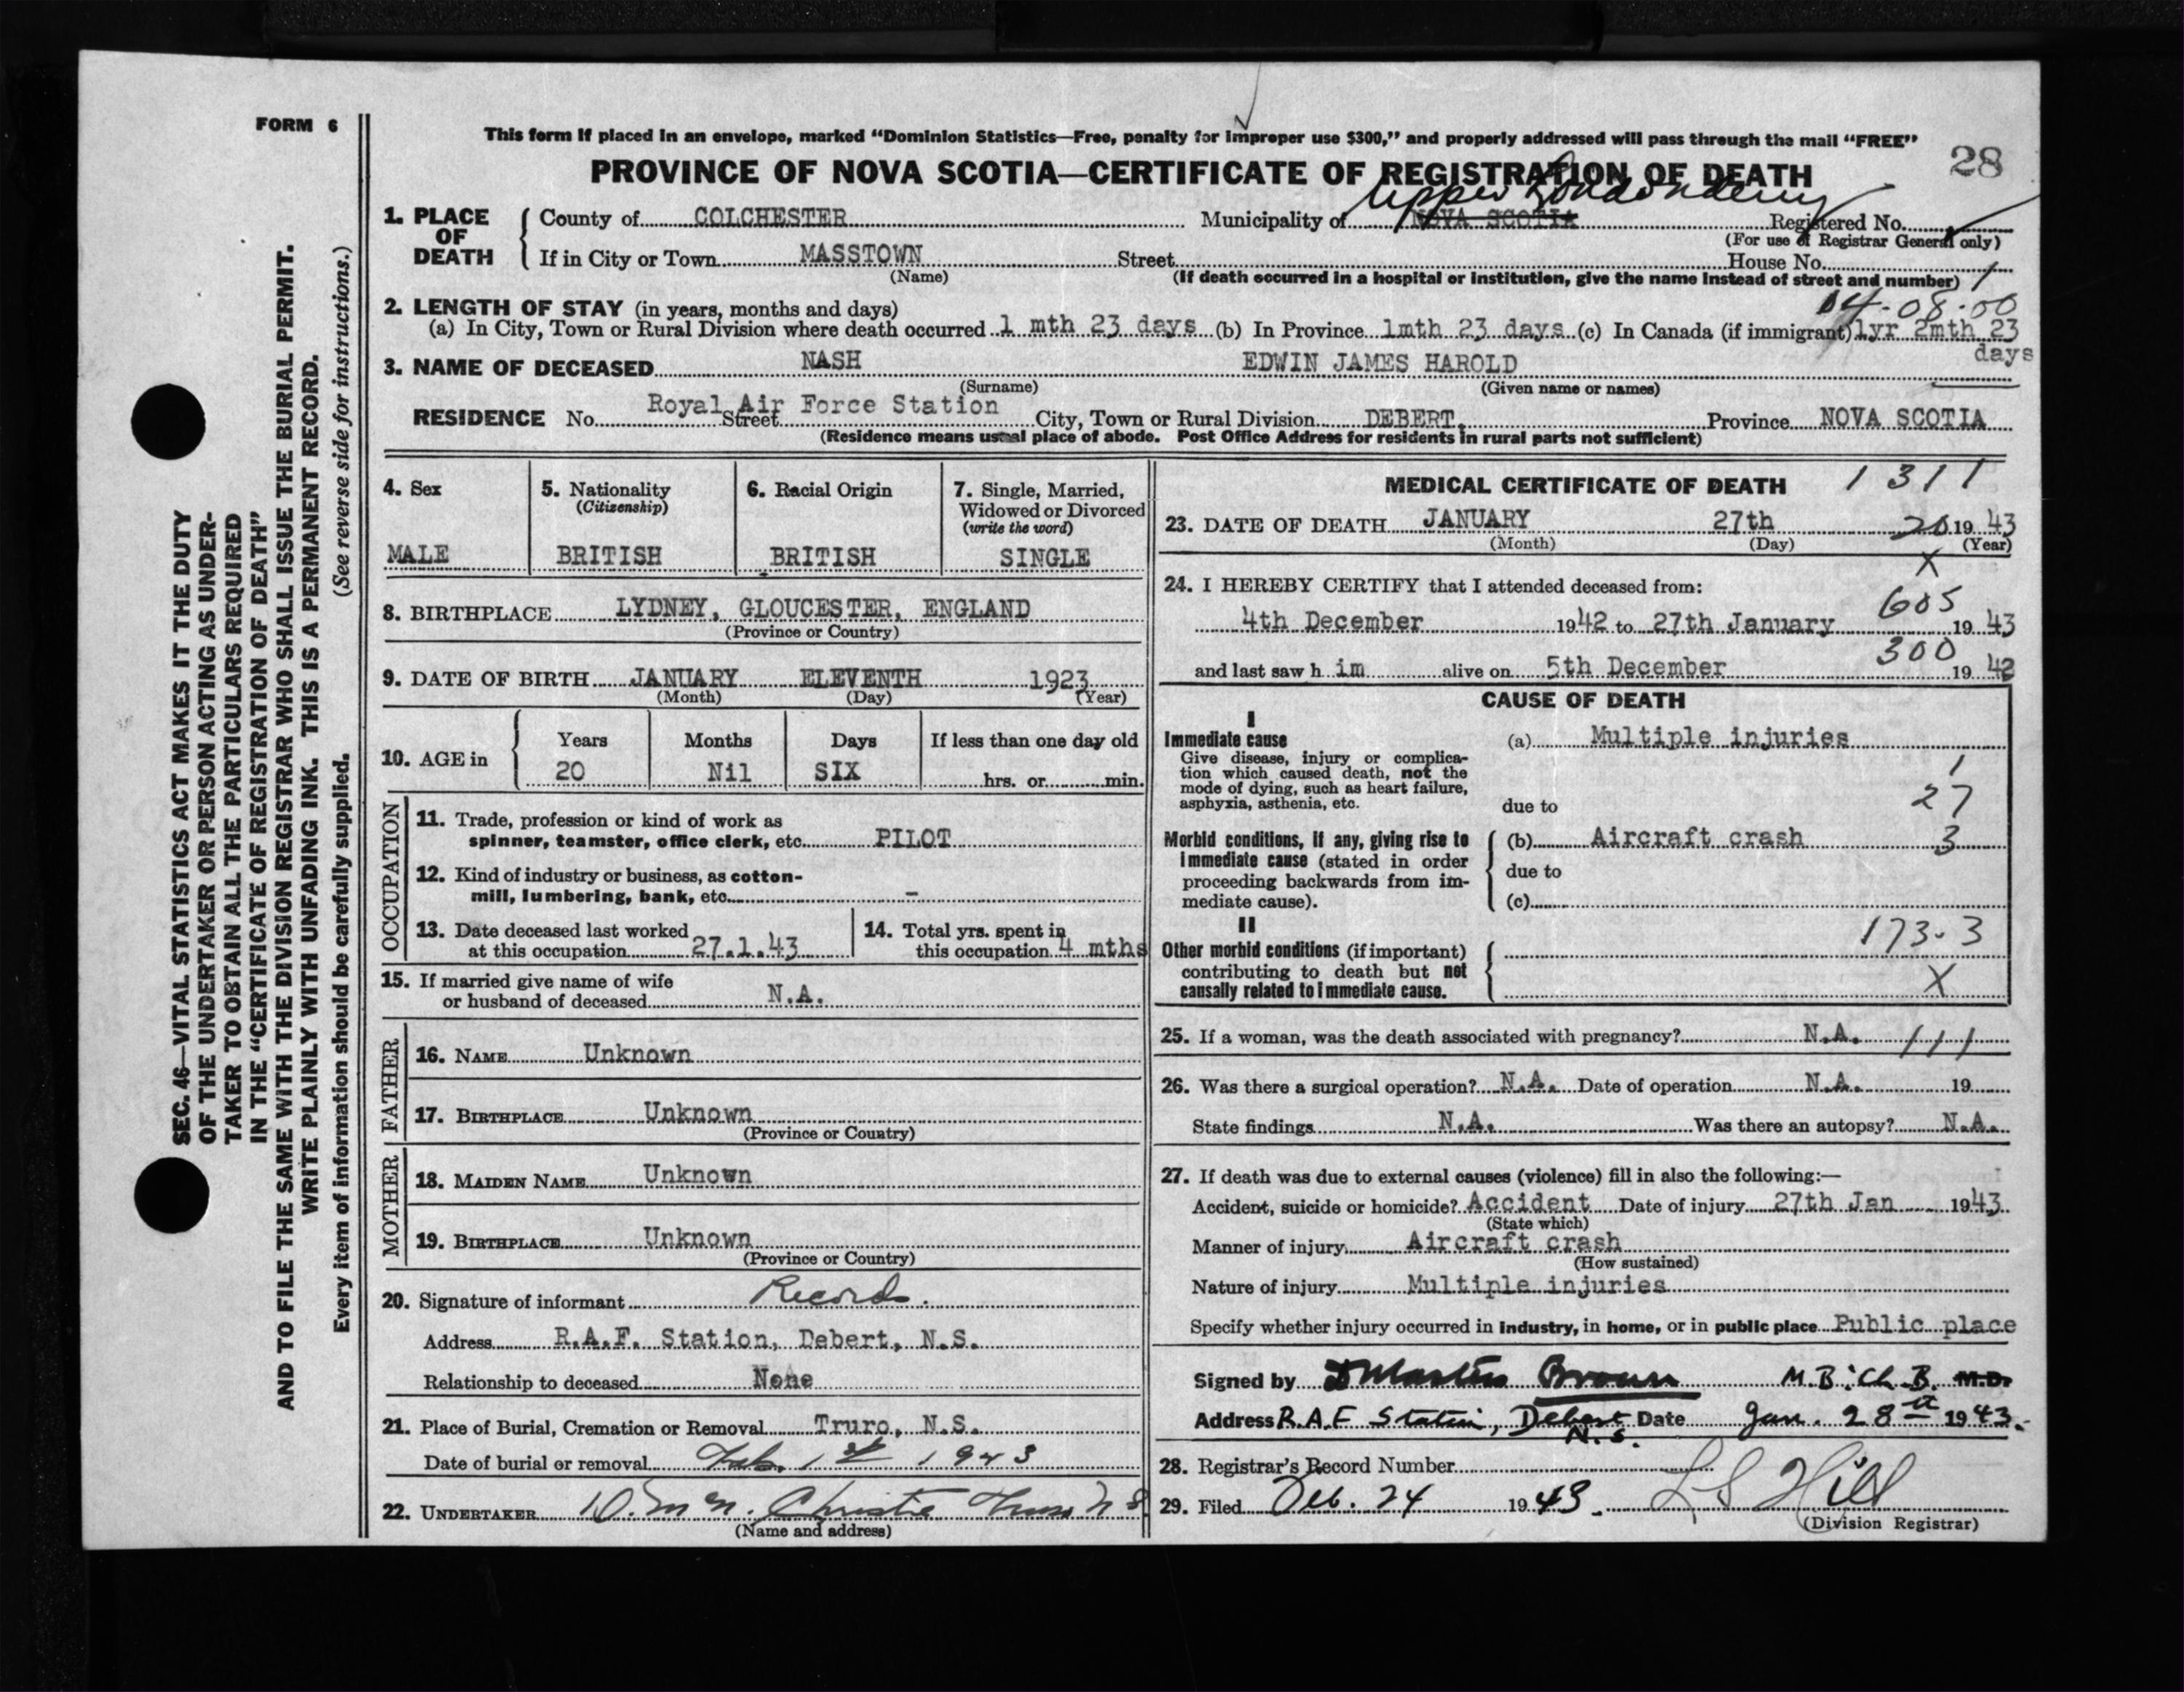 FORM 6
This form if placed in an envelope, marked "Dominion Statistics—Free, penalty for improper use $300," and properly addressed will pass through the mail "FREE"
PROVINCE OF NOVA SCOTIA—CERTIFICATE OF REGISTRATION OF DEATH
28
SEC. 46—VITAL STATISTICS ACT MAKES IT THE DUTY
OF THE UNDERTAKER OR PERSON ACTING AS UNDER-
TAKER TO OBTAIN ALL THE PARTICULARS REQUIRED
IN THE "CERTIFICATE OF REGISTRATION OF DEATH"
AND TO FILE THE SAME WITH THE DIVISION REGISTRAR WHO SHALL ISSUE THE BURIAL PERMIT.
WRITE PLAINLY WITH UNFADING INK. THIS IS A PERMANENT RECORD.
Every item of information should be carefully supplied. (See reverse side for instructions.)
Upper Londonderry
1. PLACE OF DEATH County of COLCHESTER Municipality of NOVA SCOTIA Registered No.
(For use of Registrar General only)
If in City or Town MASSTOWN Street House No.
(Name) (If death occurred in a hospital or institution, give the name instead of street and number) 1
2. LENGTH OF STAY (in years, months and days) 04-08-00
(a) In City, Town or Rural Division where death occurred 1 mth 23 days (b) In Province 1mth 23 days (c) In Canada (if immigrant) 1yr 2mth 23
days
3. NAME OF DECEASED NASH EDWIN JAMES HAROLD
(Surname) (Given name or names)
RESIDENCE No. Royal Air Force Station Street City, Town or Rural Division DEBERT. Province NOVA SCOTIA
(Residence means usual place of abode. Post Office Address for residents in rural parts not sufficient)
4. Sex 5. Nationality 6. Racial Origin 7. Single, Married,
(Citizenship) Widowed or Divorced
(write the word)
MALE BRITISH BRITISH SINGLE
8. BIRTHPLACE LYDNEY, GLOUCESTER, ENGLAND
(Province or Country)
9. DATE OF BIRTH JANUARY ELEVENTH 1923
(Month) (Day) (Year)
10. AGE in Years Months Days If less than one day old
20 Nil SIX hrs. or min.
OCCUPATION
11. Trade, profession or kind of work as
spinner, teamster, office clerk, etc. PILOT
12. Kind of industry or business, as cotton-
mill, lumbering, bank, etc. -
13. Date deceased last worked 14. Total yrs. spent in
at this occupation 27.1.43 this occupation 4 mths
15. If married give name of wife
or husband of deceased N.A.
FATHER
16. NAME Unknown
17. BIRTHPLACE Unknown
(Province or Country)
MOTHER
18. MAIDEN NAME Unknown
19. BIRTHPLACE Unknown
(Province or Country)
20. Signature of informant Records.
Address R.A.F. Station, Debert, N.S.
Relationship to deceased None
21. Place of Burial, Cremation or Removal Truro, N.S.
Date of burial or removal Feb. 1st 1943
22. UNDERTAKER Christie Truro N S
(Name and address)
MEDICAL CERTIFICATE OF DEATH 1311
23. DATE OF DEATH JANUARY 27th 20 1943
(Month) (Day) (Year)
X
24. I HEREBY CERTIFY that I attended deceased from:
605
4th December 1942 to 27th January 1943
300
and last saw h im alive on 5th December 1942
CAUSE OF DEATH
I
Immediate cause (a) Multiple injuries
Give disease, injury or complica-
tion which caused death, not the 1
mode of dying, such as heart failure,
asphyxia, asthenia, etc. due to 27
Morbid conditions, if any, giving rise to (b) Aircraft crash 3
immediate cause (stated in order
proceeding backwards from im- due to
mediate cause). (c)
II
173-3
Other morbid conditions (if important)
contributing to death but not
causally related to immediate cause. X
25. If a woman, was the death associated with pregnancy? N.A. 111
26. Was there a surgical operation? N.A. Date of operation N.A. 19
State findings N.A. Was there an autopsy? N.A.
27. If death was due to external causes (violence) fill in also the following:—
Accident, suicide or homicide? Accident Date of injury 27th Jan 1943
(State which)
Manner of injury Aircraft crash
(How sustained)
Nature of injury Multiple injuries
Specify whether injury occurred in industry, in home, or in public place Public place
Signed by Brown M.B. Ch. B. M.D.
Address R.A.F Station, Debert N.S. Date Jan. 28th 1943.
28. Registrar's Record Number
29. Filed Feb. 24 1943. L S Hill
(Division Registrar)